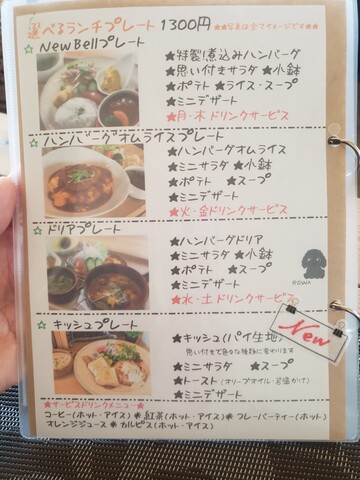 選べるランチプレート 1300円
★★写真は全てイメージです★★
☆NewBellプレート
★特製煮込みハンバーグ
★思い付きサラダ ★小鉢
★ポテト ★ライス・スープ
★ミニデザート
★月・木 ドリンクサービス
☆ハンバーグオムライスプレート
★ハンバーグオムライス
★ミニサラダ ★小鉢
★ポテト ★スープ
★ミニデザート
★火・金ドリンクサービス
☆ドリアプレート
★ハンバーグドリア
★ミニサラダ ★小鉢
★ポテト ★スープ
★ミニデザート
★水・土ドリンクサービス
New
☆キッシュプレート
★キッシュ(パイ生地)
思い付きで色々な種類に変わります
★ミニサラダ ★スープ
★トースト(オリーブオイル・岩塩がけ)
★ミニデザート
★サービスドリンクメニュー★
コーヒー(ホット・アイス)★紅茶(ホット・アイス)★フレーバーティー(ホット)
オレンジジュース★カルピス(ホット・アイス)